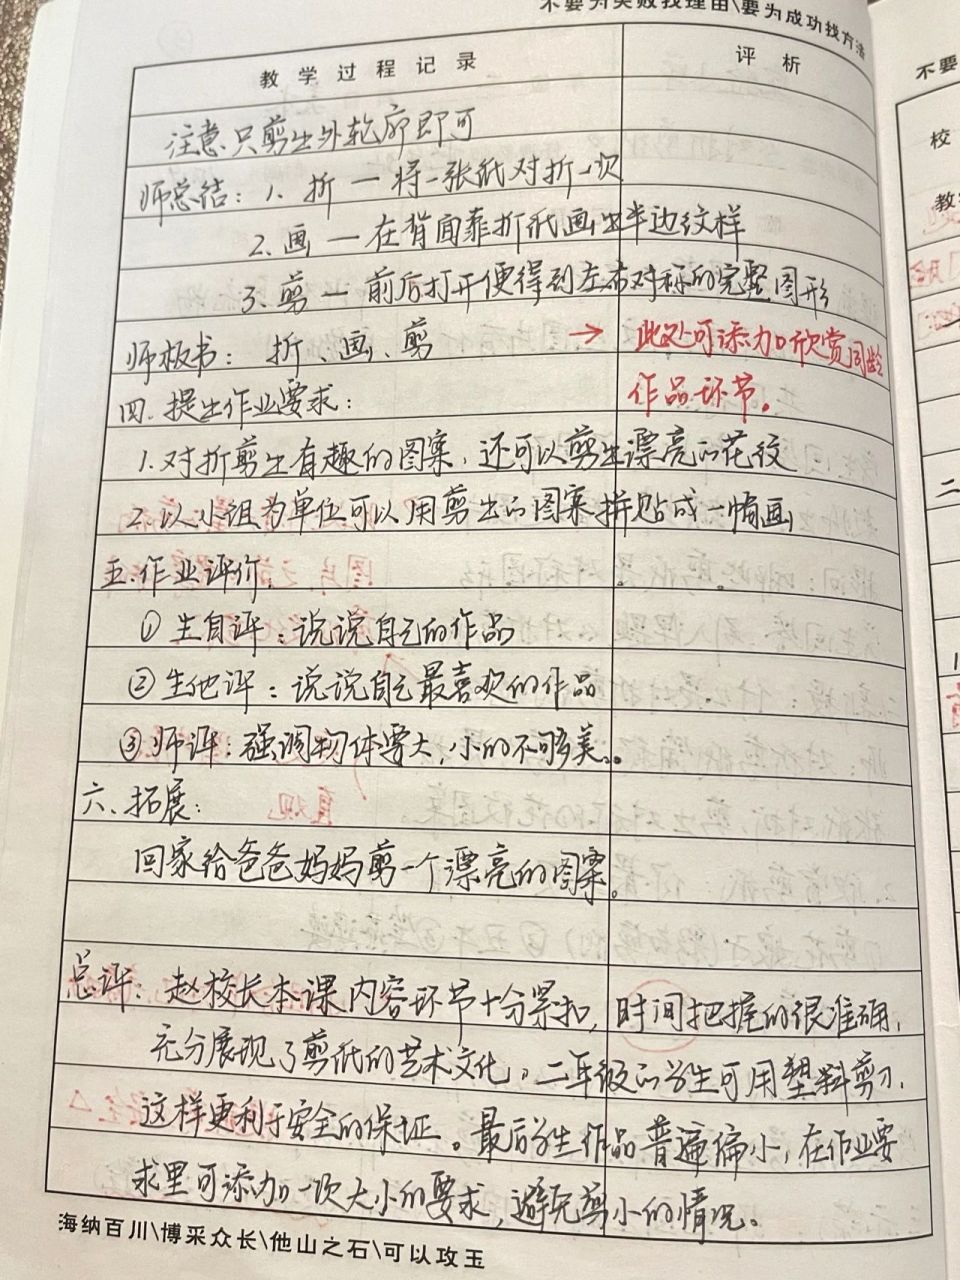 不要为失败找理由\要为成功找方法
教学过程记录 评析
注意只剪出外轮廓即可
师总结：1. 折 — 将一张纸对折一次
2. 画 — 在背面靠折纸画出半边纹样
3. 剪 — 前后打开便得到左右对称的完整图形
师板书：折、画、剪 → 此处可添加欣赏同龄
作品环节。
四. 提出作业要求：
1. 对折剪出有趣的图案，还可以剪出漂亮的花纹
2. 以小组为单位可以用剪出的图案拼贴成一幅画
五. 作业评价.
① 生自评：说说自己的作品
② 生他评：说说自己最喜欢的作品
③ 师评：强调物体要大，小的不够美。
六、拓展：
回家给爸爸妈妈剪一个漂亮的图案。
总评：赵校长本课内容环节十分紧扣，时间把握的很准确，
充分展现了剪纸的艺术文化。二年级的学生可用塑料剪刀，
这样更利于安全的保证。最后学生作品普遍偏小，在作业要
求里可添加一次大小的要求，避免剪小的情况。
海纳百川\博采众长\他山之石\可以攻玉
不要
校
二